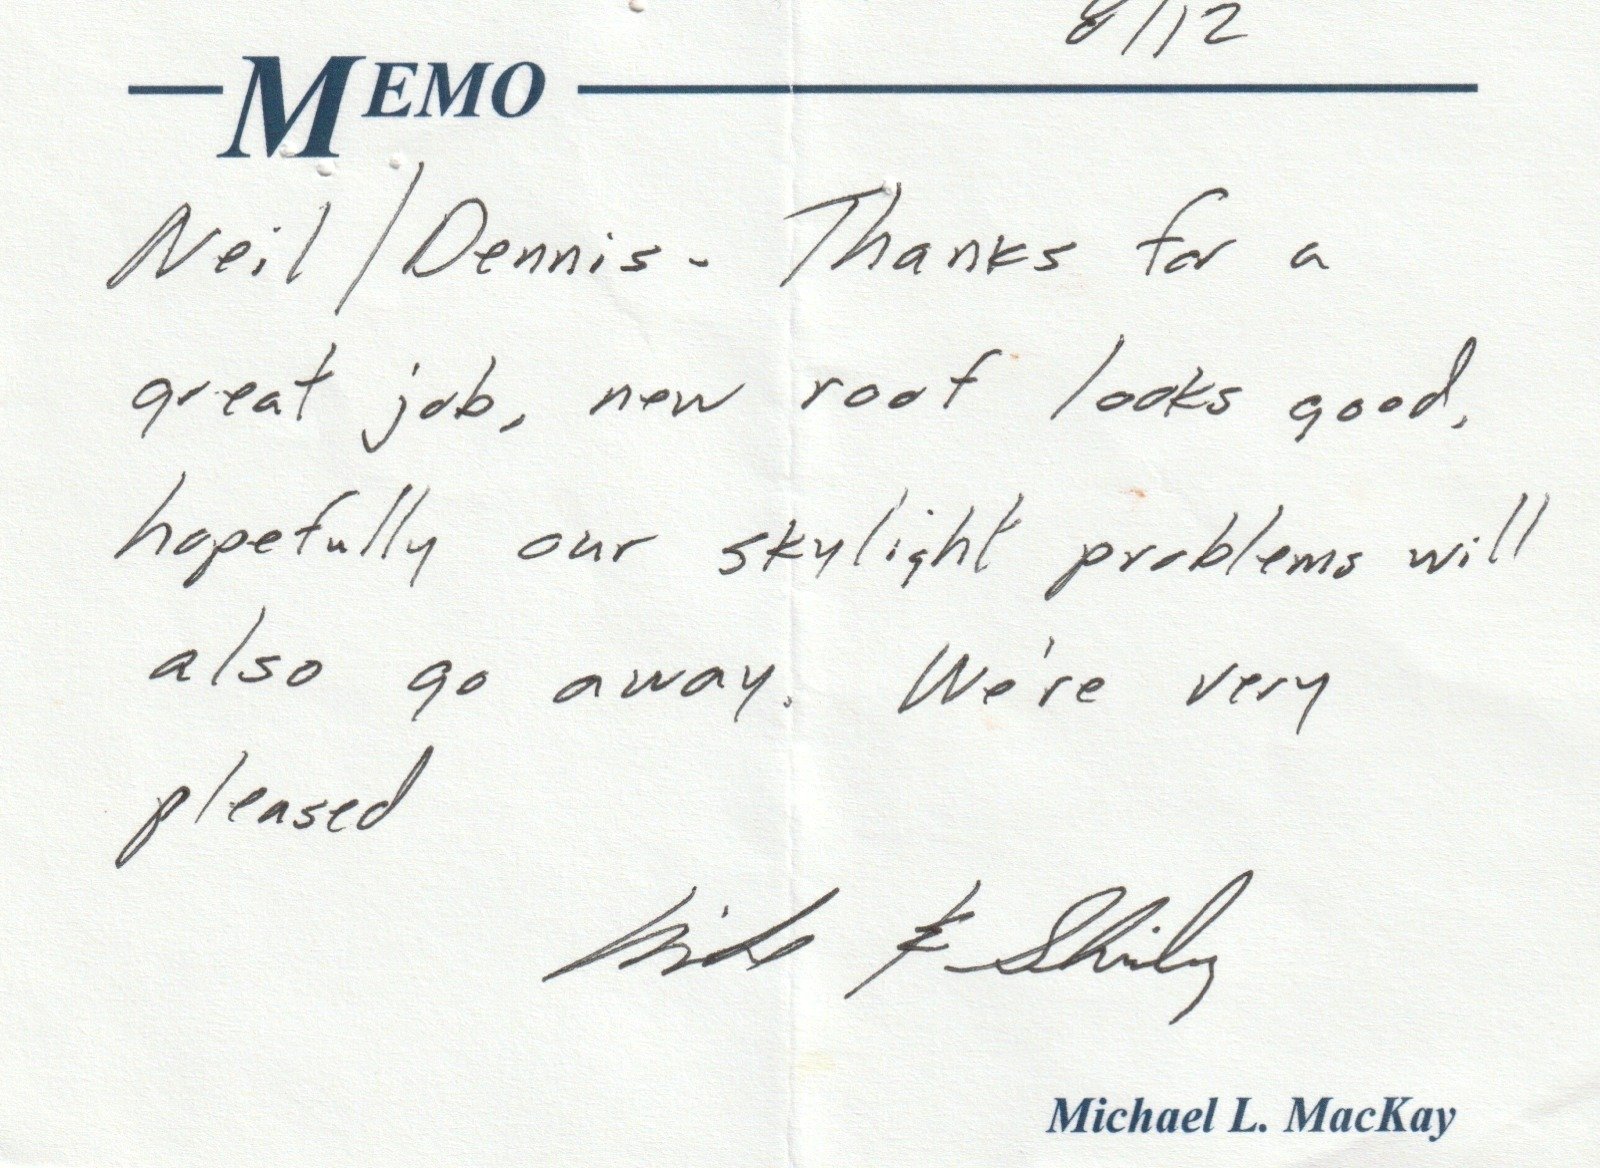 8/12
MEMO
Neil/Dennis - Thanks for a
great job, new roof looks good,
hopefully our skylight problems will
also go away. We're very
pleased
Mike & Shirley
Michael L. MacKay